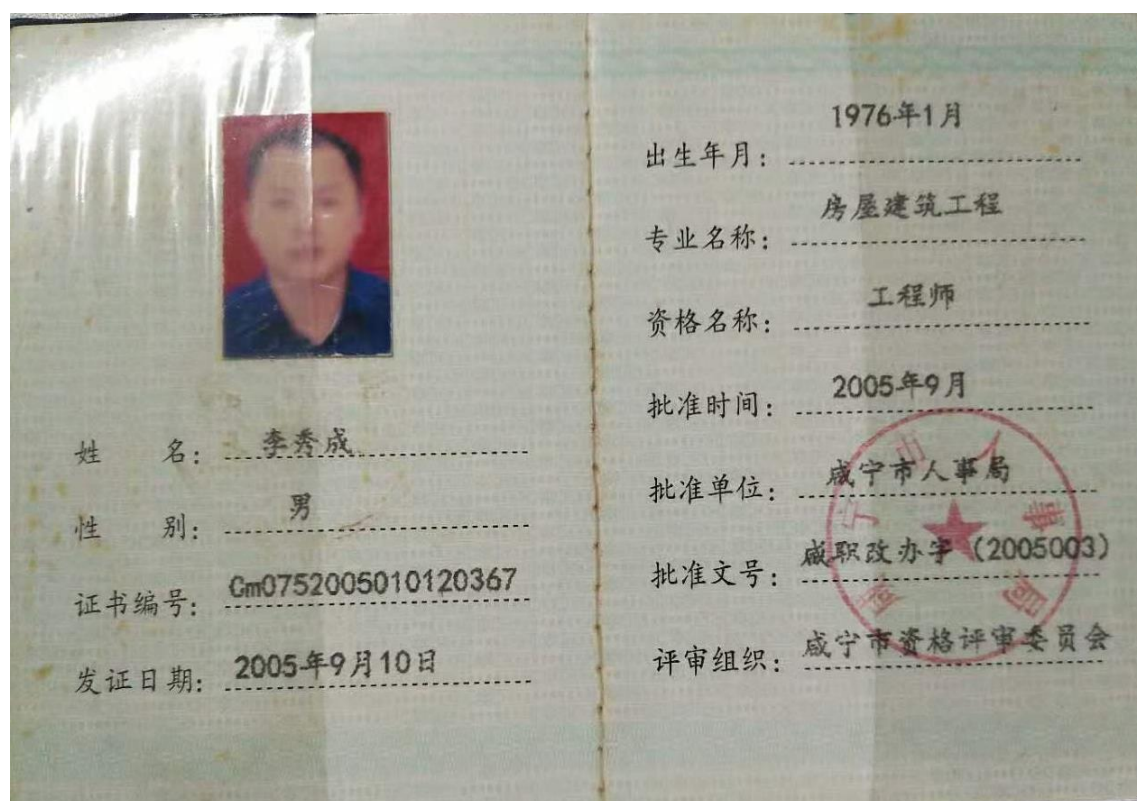 姓 名: 李秀成
性 别: 男
证书编号: Cm0752005010120367
发证日期: 2005年9月10日
出生年月: 1976年1月
专业名称: 房屋建筑工程
资格名称: 工程师
批准时间: 2005年9月
批准单位: 咸宁市人事局
批准文号: 咸职改办字（2005003）
评审组织: 咸宁市资格评审委员会
咸宁市人事局